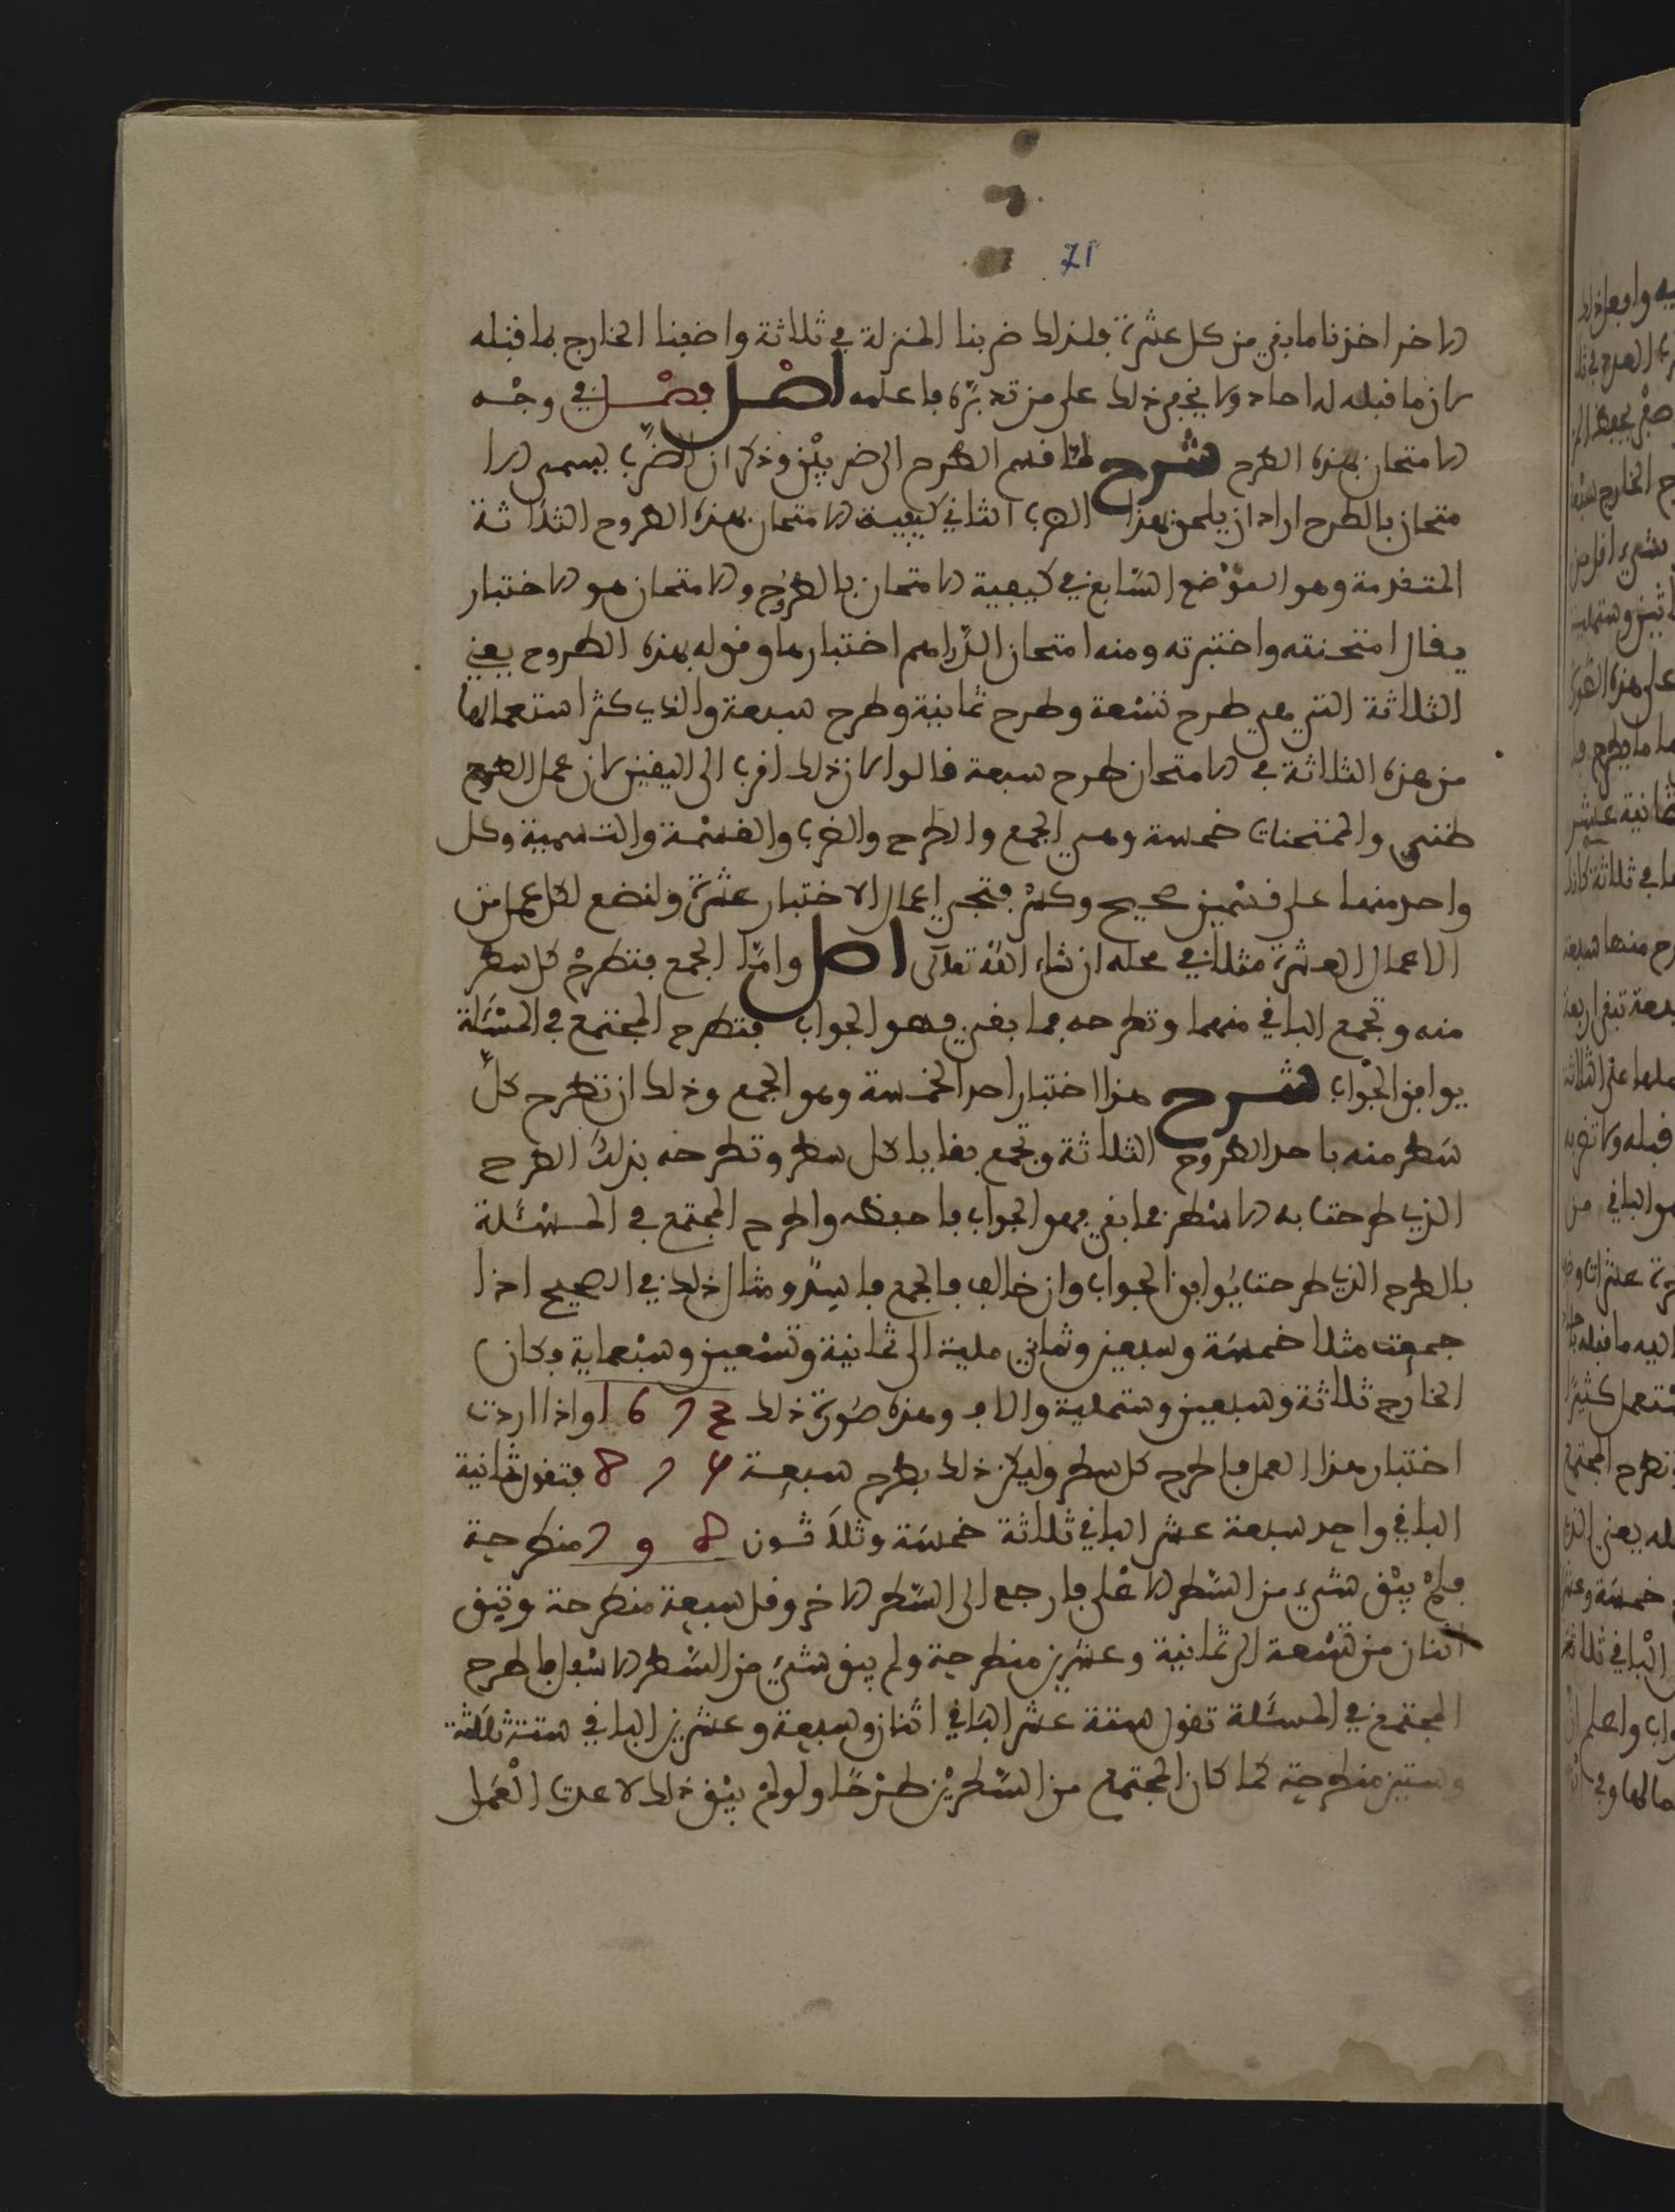 71
الاخر اخذنا ما بقي من كل عشرة فلذلك ضربنا المنزلة في ثلاثة واضفنا الخارج لما قبله
لان ما قبله له احاد ولا يخفى ذلك على من تدبره فاعلمه اصل فصل في وجه
الامتحان بهذه الطرح شرح لما قسم الطرح الى ضربين وذكر ان الضرب يسمى الا
متحان بالطرح اراد ان يلحق بهذا الضرب الثاني كيفية الامتحان بهذه الطروح الثلاثة
المتقدمة وهو الموضع السابع في كيفية الامتحان بالطروح والامتحان هو الاختبار
يقال امتحنته واختبرته ومنه امتحان الدراهم اختبارها وقوله بهذه الطروح يعني
الثلاثة التي هي طرح تسعة وطرح ثمانية وطرح سبعة والذي كثر استعمالها
من هذه الثلاثة في الامتحان طرح سبعة قالوا لان ذلك اقرب الى اليقين لان عمل الطرح
ظني والممتحنات خمسة وهي الجمع والطرح والضرب والقسمة والتسمية وكل
واحد منها على قسمين صحيح وكسر فتجي اعمال الاختبار عشرة ولنضع لكل عمل من
الاعمال العشرة مثلا في محله ان شاء الله تعالى اصل واما الجمع فتطرح كل سطر
منه وتجمع الباقي منهما وتطرحه فما بقي فهو الجواب فتطرح المجتمع في المسئلة
يوافق الجواب شرح هذا اختبار احد الخمسة وهو الجمع وذلك ان تطرح كل
سطر منه باحد الطروح الثلاثة وتجمع بقايا كل سطر وتطرحه بذلك الطرح
الذي طرحت به الاسطر فما بقي فهو الجواب فاحفظه واطرح المجتمع في المسئلة
بالطرح الذي طرحت يوافق الجواب وان خالف فالجمع فاسد ومثال ذلك في الصحيح اذا
جمعت مثلا خمسة وسبعين وثماني مئة الى ثمانية وتسعين وسبعماية وكان
الخارج ثلاثة وسبعين وستمئة والف وهذه صورة ذلك 3 7 6 1 واذا اردت
اختبار هذا العمل فاطرح كل سطر وليكن ذلك بطرح سبعة 5 7 8 فتقول ثمانية
الباقي واحد سبعة عشر الباقي ثلاثة خمسة وثلاثون 8 9 7 منطرحة
فلم يبق شيء من السطر الاعلى فارجع الى السطر الاخر وقل سبعة منطرحة وتبقى
اثنان من تسعة الى ثمانية وعشرين منطرحة ولم يبق شيء من السطر الاسفل فاطرح
المجتمع في المسئلة تقول ستة عشر الباقي اثنان وسبعة وعشرين الباقي ستة ثلاثة
وستين منطرحة كما كان المجتمع من السطرين طرحا ولو لم يبق ذلك لاعدت العمل